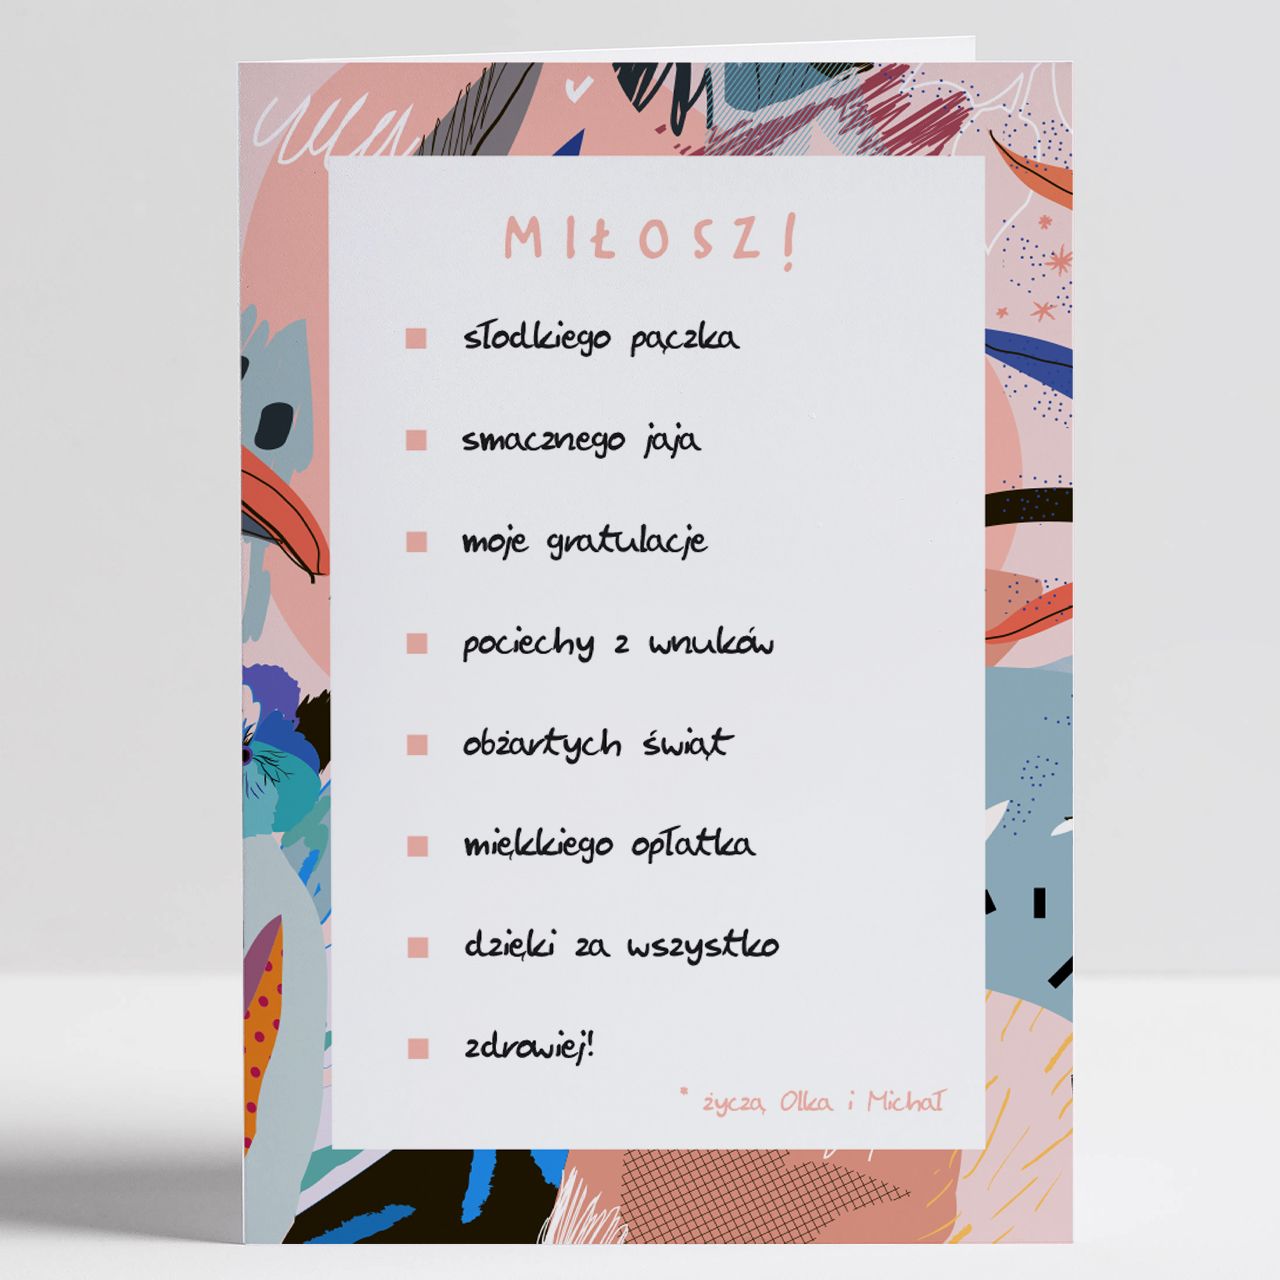 MIŁOSZ!
słodkiego pączka
smacznego jaja
moje gratulacje
pociechy z wnuków
obżartych świąt
miękkiego opłatka
dzięki za wszystko
zdrowiej!
* życzą Olka i Michał